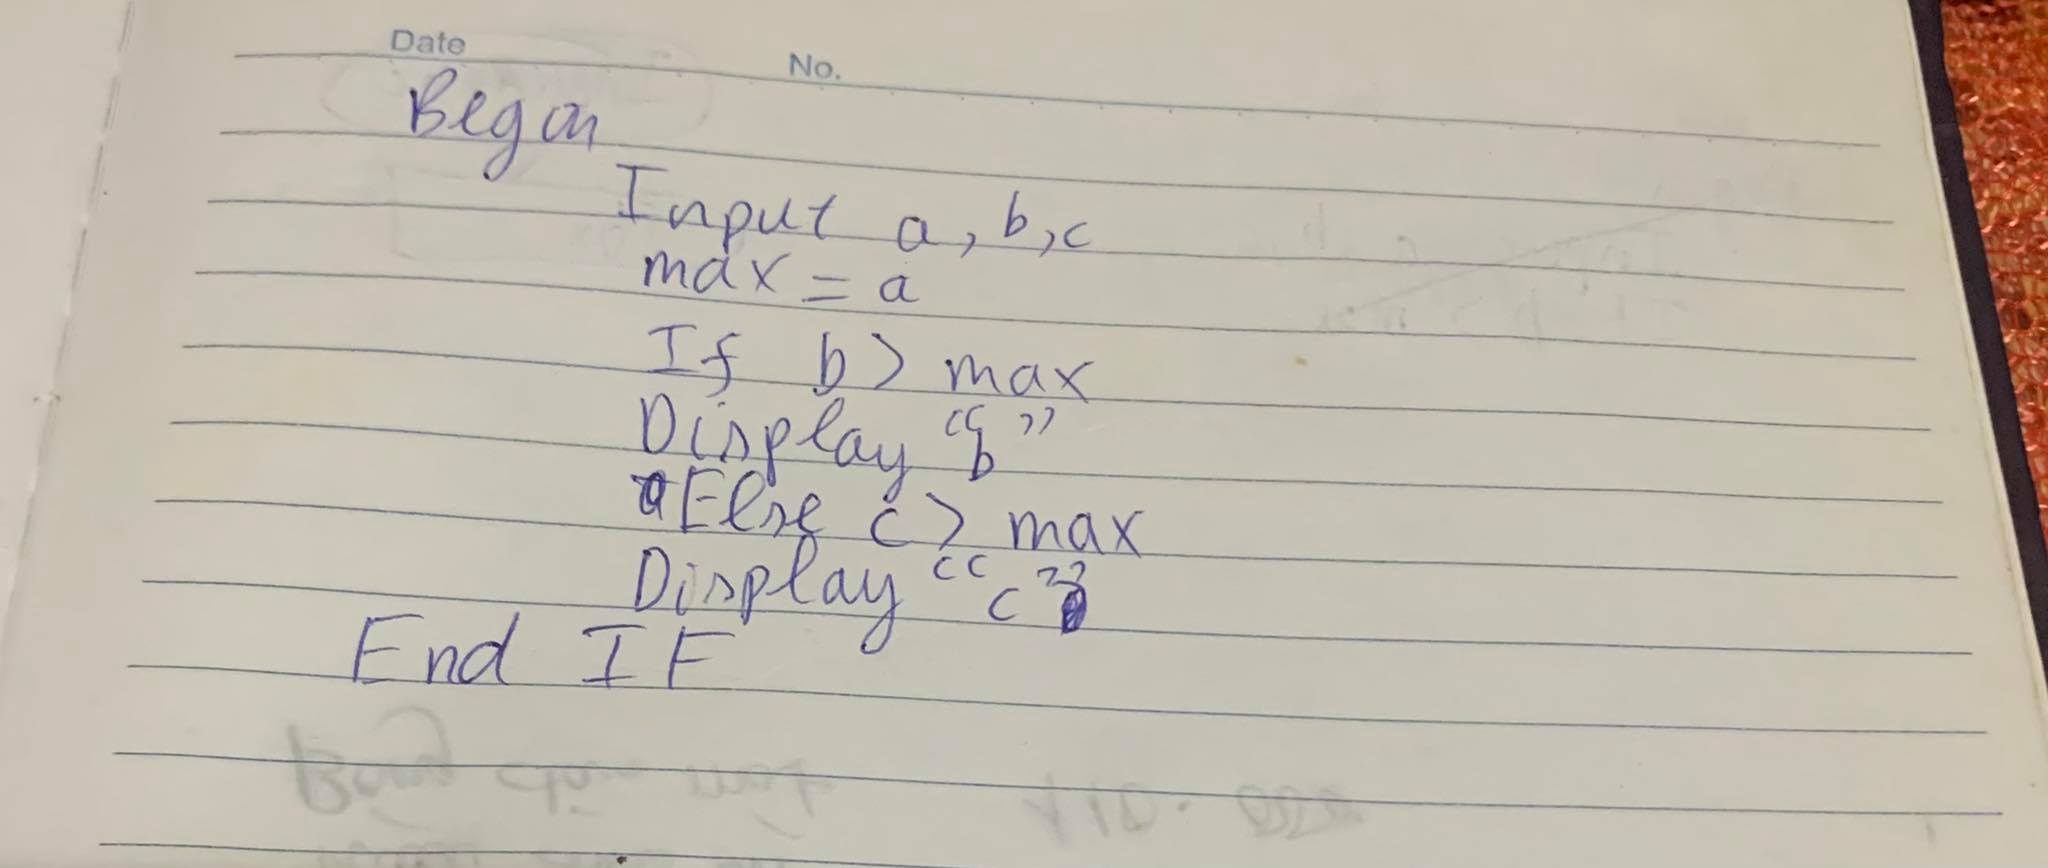 Date No.
Began
Input a, b, c
max = a
If b > max
Display "b"
Else c > max
Display "c"
End IF